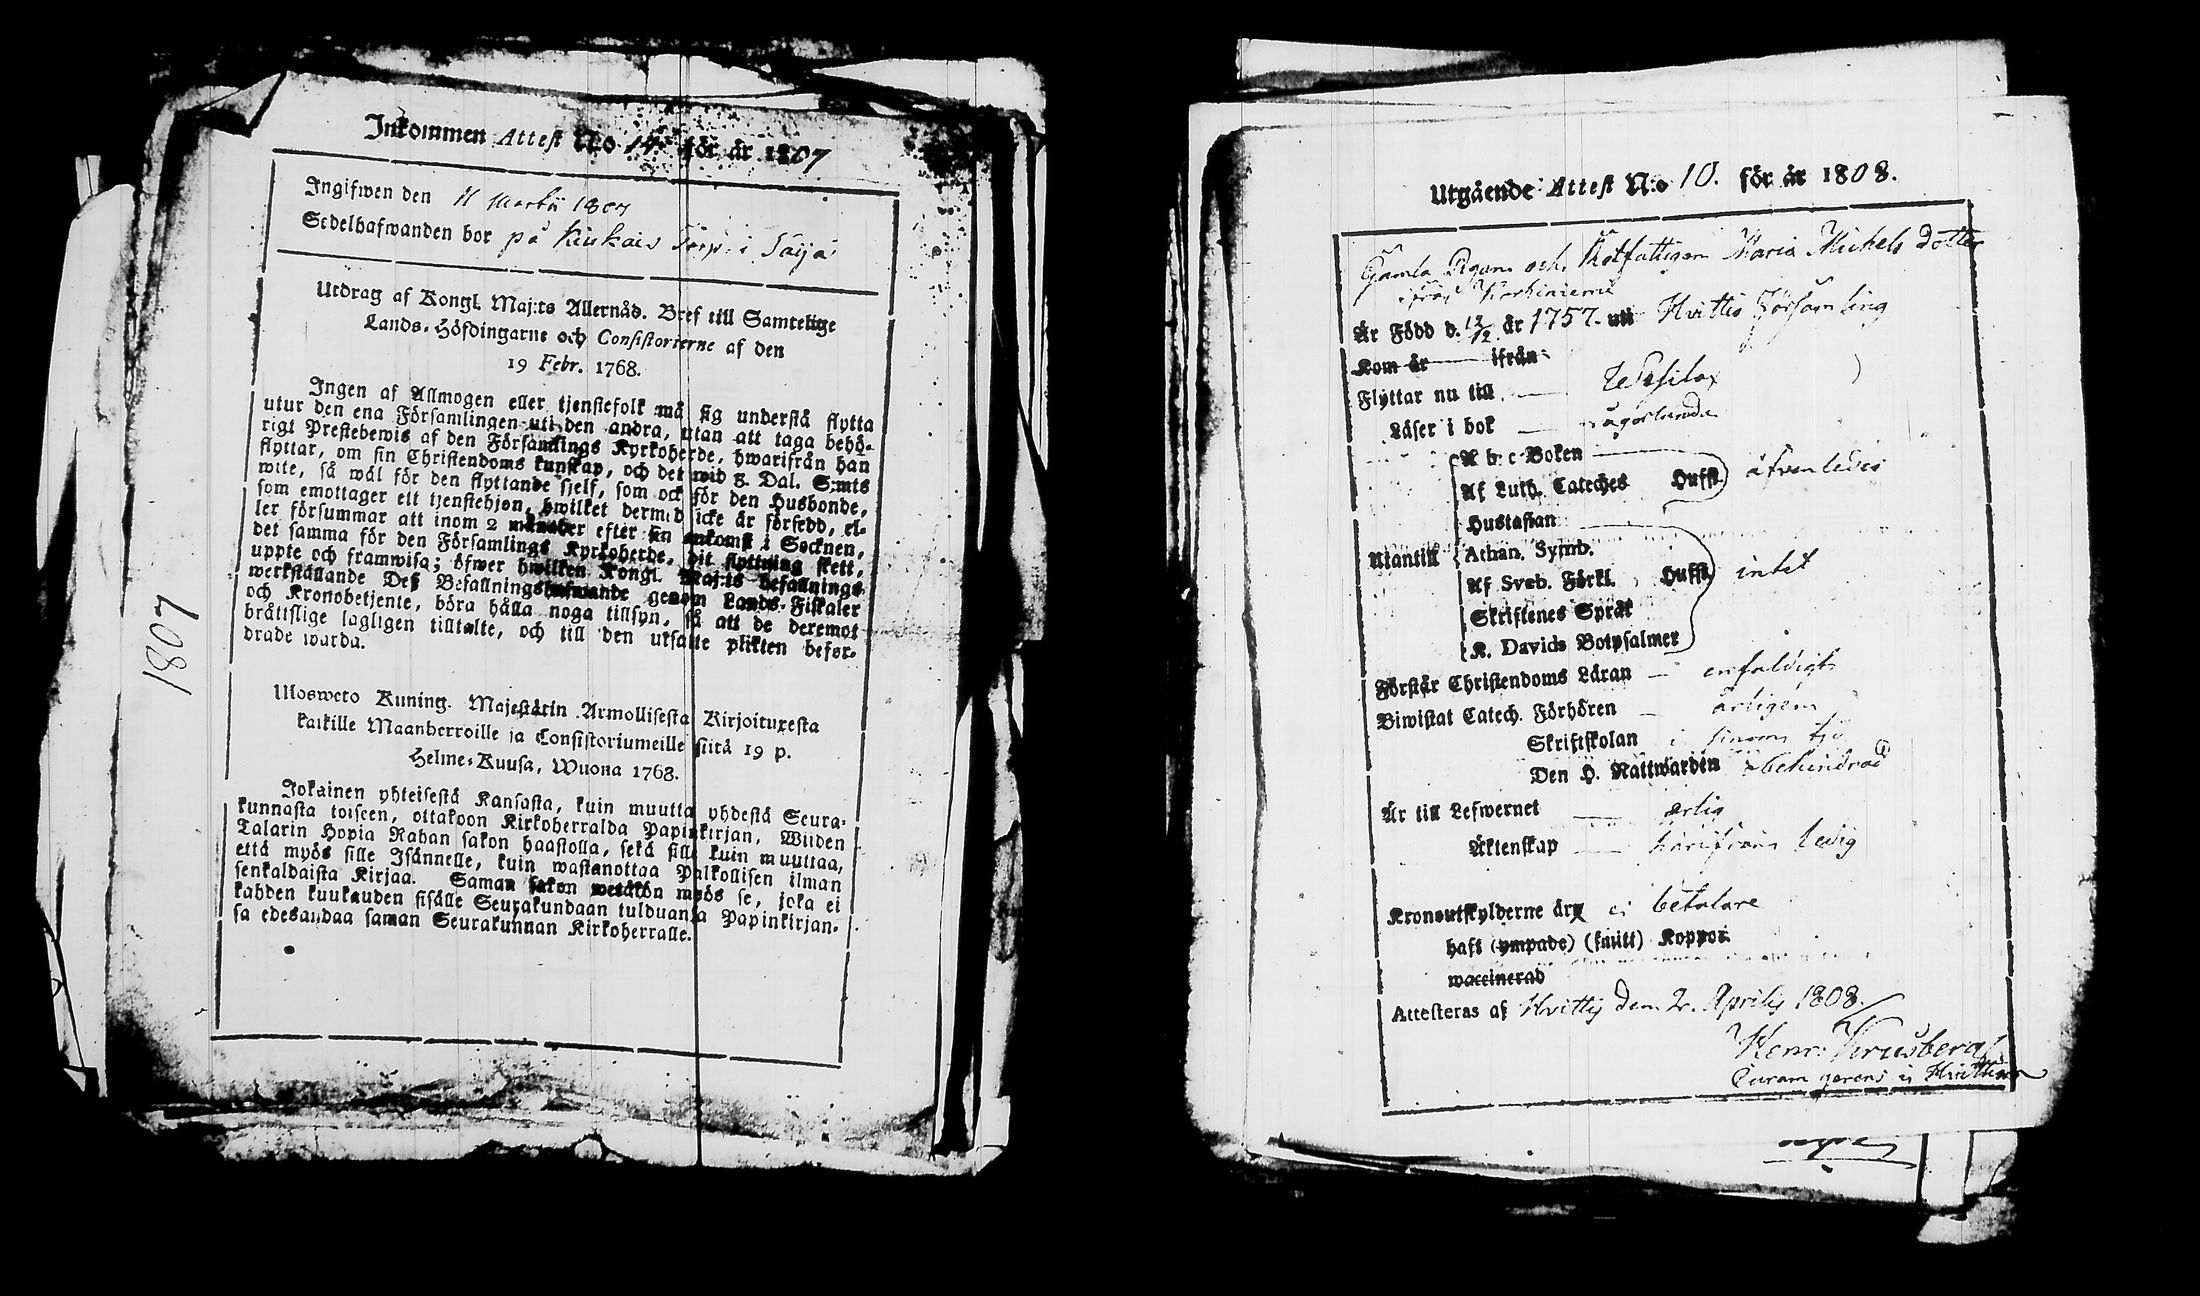 Inkommen Attest No 14 för år 1807
Ingifwen den 11 Martii 1807
Sedelhafwanden bor på Kiukais Torp i Saija
Utdrag af Kongl. Maj:ts Allernåd. Bref till Samtelige
Lands-Höfdingarne och Consistorierne af den
19 Febr. 1768.
Ingen af Allmogen eller tjenstefolk må sig understå flytta
utur den ena Församlingen uti den andra, utan att taga behö-
rigt Prestebewis af den Församlings Kyrkoherde, hwarifrån han
flyttar, om sin Christendoms kunskap, och det wid 8. Dal. S:mts
wite, så wäl för den flyttande sjelf, som ock för den Husbonde,
som emottager ett tjenstehjon, hwilket dermed icke är försedd, el-
ler försummar att inom 2 månader efter sin ankomst i Socknen,
det samma för den Församlings Kyrkoherde, dit flyttning skett,
uppte och framwisa; öfwer hwilken Kongl. Maj:ts befallnings
werkställande Deß Befallningshafwande genom Lands-Fiskaler
och Kronobetjente, böra hålla noga tillsyn, så att de deremot
bråttslige lagligen tilltalte, och till den utsatte plikten befor-
drade warda.
1807
Ulosweto Kuning. Majestätin Armollisesta Kirjoituxesta
kaikille Maanherroille ja Consistoriumeille siitä 19 p.
Helme-Kuusa, Wuona 1768.
Jokainen yhteisestä Kansasta, kuin muutta yhdestä Seura-
kunnasta toiseen, ottakoon Kirkoherralda Papinkirjan, Wiiden
Talarin Hopia Rahan sakon haastolla, sekä sille kuin muuttaa,
että myös sille Isännelle, kuin wastanottaa Palkollisen ilman
senkaldaista Kirjaa. Saman sakon wetäkön myös se, joka ei
kahden kuukauden sisälle Seurakundaan tulduansa Papinkirjan-
sa edesandaa saman Seurakunnan Kirkoherralle.
Utgående Attest N:o 10. för år 1808.
Gamla Pigan och Rotfattigan Maria Michels dotter
ifrån Karhiniemi
Är Född d. 12/12 år 1757. uti Hvittis Församling
Kom år ifrån
Flyttar nu till Wesilax
Läser i bok någorlunda
A b c Boken
Af Luth. Cateches Huffst. äfvenledes
Hustaflan
Utantill Athan. Symb.
Af Sveb. Förkl. Huffst. intet
Skriftenes Språk
K. Davids Botpsalmer
Förstår Christendoms Läran enfaldigt
Biwistat Catech. Förhören årligen
Skriftskolan i sinom tid
Den H. Nattwarden obehindrad
Är till Lefwernet ärlig
Äktenskap härifrån ledig
Kronoutskylderne äro ei betalare
haft (ympade) (smitt) Koppor
waccinerad
Attesteras af Hvittis dem 2. Aprilis 1808.
Henr: Krusberg
Curam gerens i Hvittis